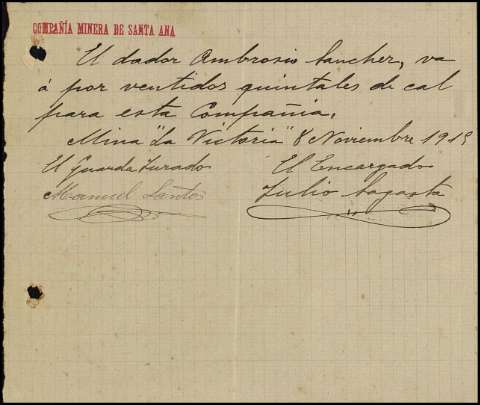 COMPAÑÍA MINERA DE SANTA ANA
El dador Ambrosio Sancher, va
á por ventidos quintales de cal
para esta Compañia.
Mina "La Victoria" 8 Noviembre
El Guarda Jurado El Encargado
Manuel Santos Julio Sagasta